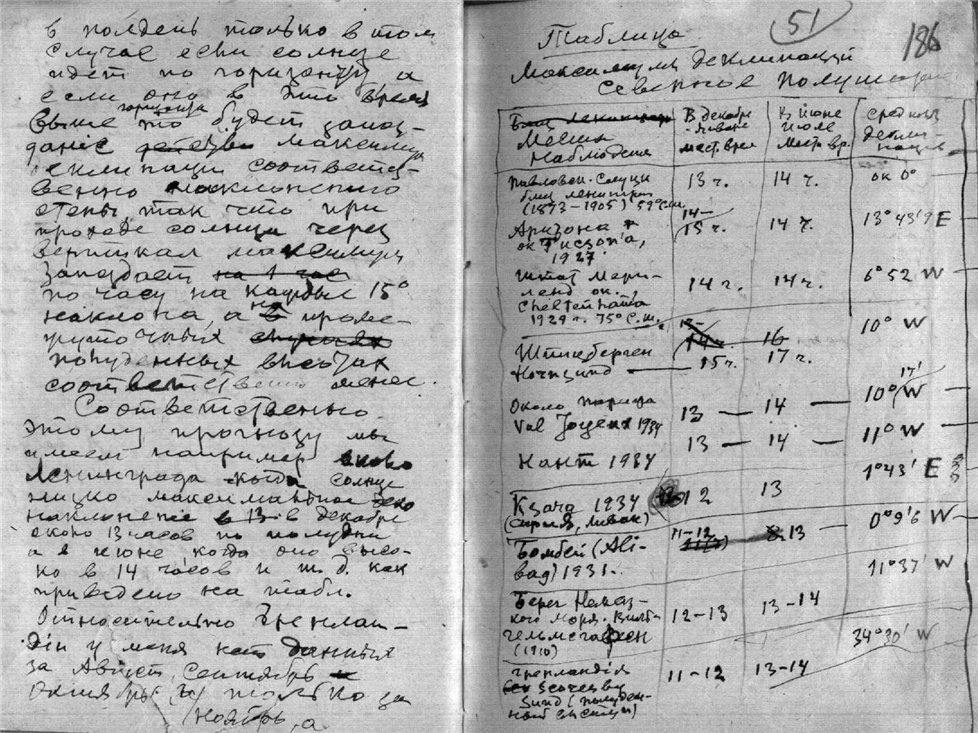 в полдень только в том
случае если солнце
идет по горизонту а
если оно в это время
горизонта
выше то будет запоз-
дание максимум
деклинации соответст-
венно
так что при
проходе солнца через
вертикал максимум
запоздает на 1 час
по часу на каждые 15°
наклона, а в проме-
жуточных
полуденных высотах
соответственно менее.
Соответственно
этому прогнозу мы
имеем например около
Ленинграда когда солнце
низко максимальное
наклонение в 13 в декабре
около 13 часов по полудни
а в июне когда оно высо-
ко в 14 часов и т. д. как
приведено на табл.
Относительно Гренлан-
дии у меня нет данных
за Август, Сентябрь
Октябрь, только за
Ноябрь, а
51
186
Таблица
Максимумы деклинаций
северное полушарие
Места наблюдения
В декабре январе мест. врем
В июне июле мест. вр.
средняя деклинация
Павловск. Слуцк
близ Ленингр
(1873-1905) 59° с.ш.
13 ч.
14 ч.
ок 0°
Аризона
ок Тиссон'а,
1927.
14-
15 ч.
14 ч.
13° 43'9 E
Штат Мери-
ленд ок.
Cheltenham'а
1929 г.
14 г.
14 г.
6° 52 W
Шпицберген
15 ч.
16
17 ч.
10° W
Около Парижа
Val Joyeux 1934
13 —
14 —
10° W
17'
Нант 1934
13 —
14 —
11° W
Ксара 1934
(сирия, ливан)
12
13
1° 43' E
Бомбей (Ali-
bag) 1931.
11-12
13
0° 9'6 W
Берег Немец-
кого моря. Виль-
гельмсгафен
(1910)
12-13
13-14
11° 37' W
Гренландия
Scoresby
Sund
11-12
13-14
34° 30' W